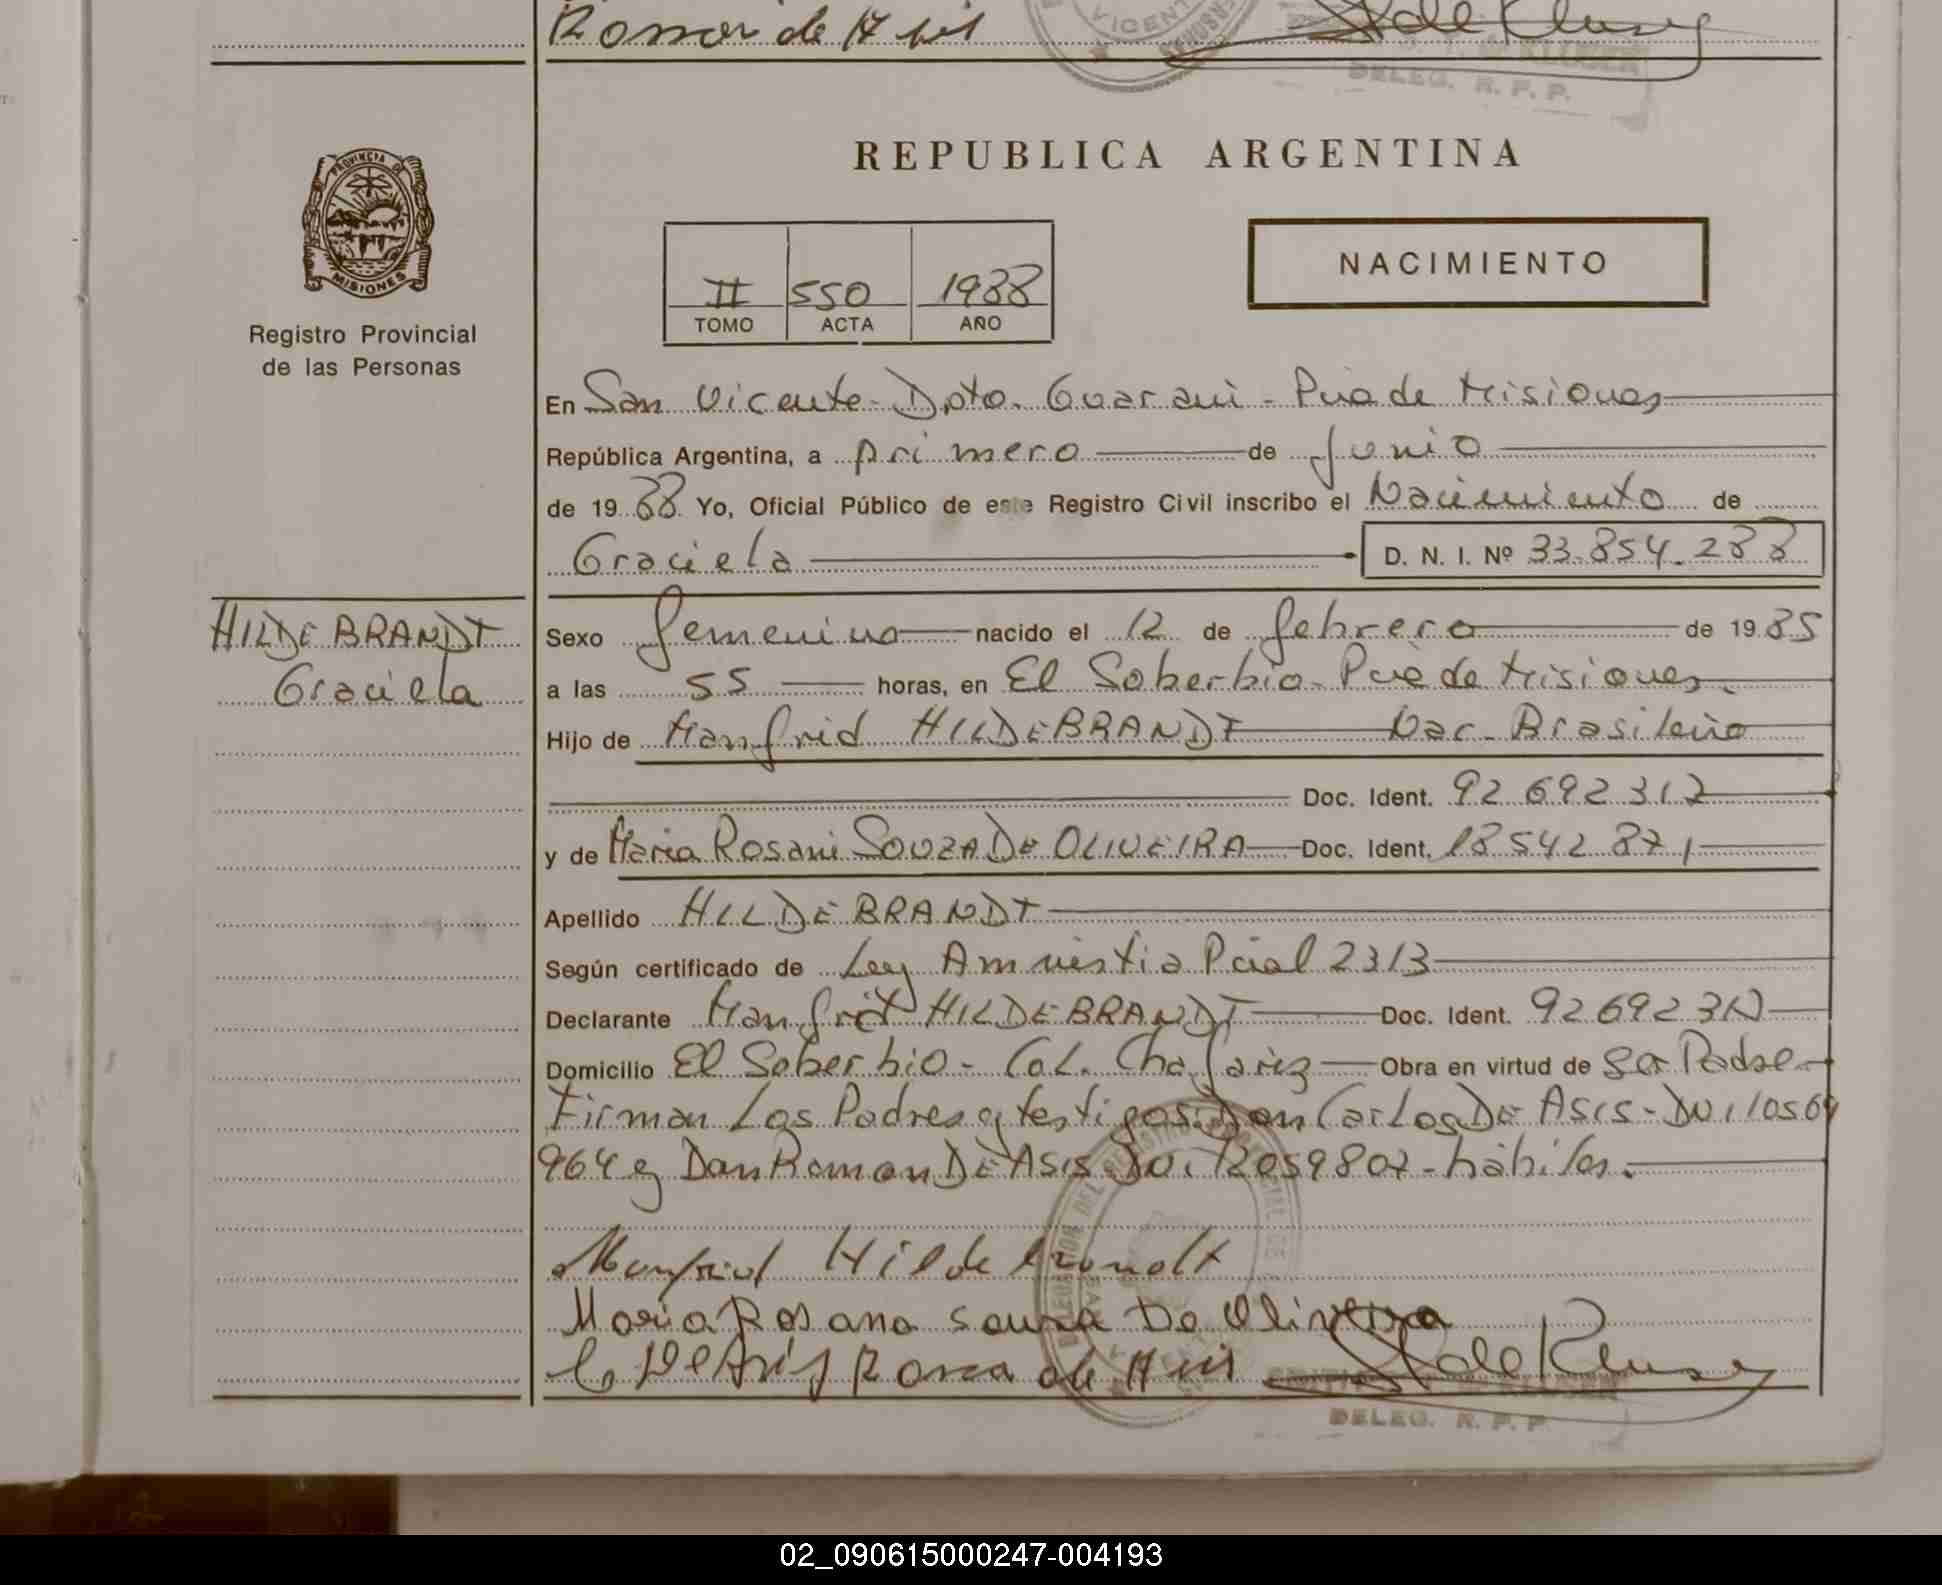 Roman de
VICENT
DELEG. R. P. P.
REPUBLICA ARGENTINA
PROVINCIA DE
MISIONES
Registro Provincial
de las Personas
II 550 1988
TOMO ACTA AÑO
NACIMIENTO
En San Vicente - Dpto. Guarani - Pcia de Misiones
República Argentina, a primero de Junio
de 19 88 Yo, Oficial Público de este Registro Civil inscribo el Nacimiento de
Graciela D. N. I. Nº 33.854.288
HILDEBRANDT
Graciela
Sexo femenino nacido el 12 de febrero de 19 85
a las 5 5 horas, en El Soberbio - Pcia de Misiones.
Hijo de Manfrid HILDEBRANDT Nac. Brasileño
Doc. Ident. 92 692 312
y de Maria Rosani SOUZA DE OLIVEIRA Doc. Ident. 18 542 871
Apellido HILDEBRANDT
Según certificado de Ley Amnistia Pcial 2313
Declarante Manfrid HILDEBRANDT Doc. Ident. 92692312
Domicilio El Soberbio - Col. Chafariz Obra en virtud de ser Padre
Firman Los Padres y testigos: Don Carlos DE ASIS - DNI 10569
964 y Don Roman DE ASIS DNI 12059807 - hábiles.
Manfrid Hildebrandt
Maria Rosana souza De Olivera
C De Asis Roman de
DELEG. R. P. P.
02_090615000247-004193